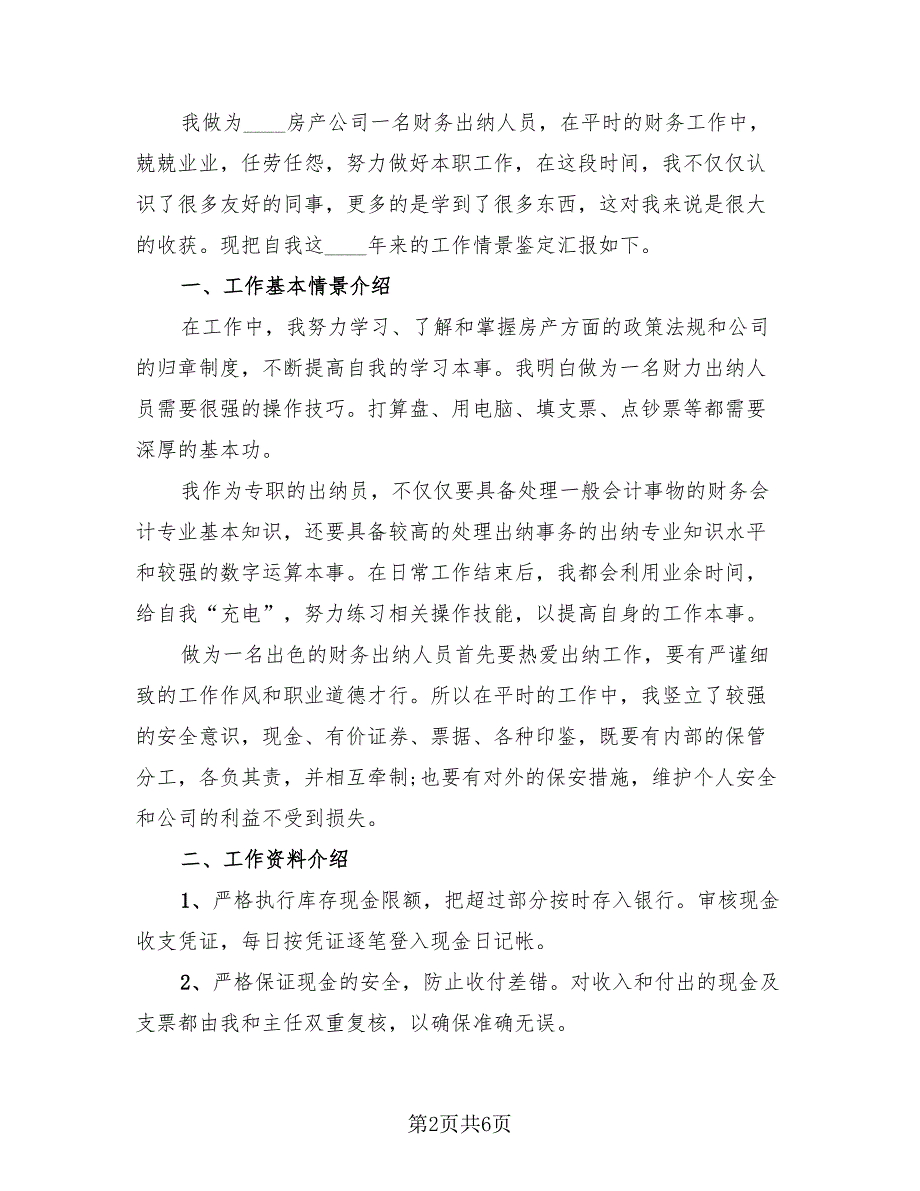 我做为____房产公司一名财务出纳人员，在平时的财务工作中，
兢兢业业，任劳任怨，努力做好本职工作，在这段时间，我不仅仅认
识了很多友好的同事，更多的是学到了很多东西，这对我来说是很大
的收获。现把自我这____年来的工作情景鉴定汇报如下。
一、工作基本情景介绍
在工作中，我努力学习、了解和掌握房产方面的政策法规和公司
的归章制度，不断提高自我的学习本事。我明白做为一名财力出纳人
员需要很强的操作技巧。打算盘、用电脑、填支票、点钞票等都需要
深厚的基本功。
我作为专职的出纳员，不仅仅要具备处理一般会计事物的财务会
计专业基本知识，还要具备较高的处理出纳事务的出纳专业知识水平
和较强的数字运算本事。在日常工作结束后，我都会利用业余时间，
给自我“充电”，努力练习相关操作技能，以提高自身的工作本事。
做为一名出色的财务出纳人员首先要热爱出纳工作，要有严谨细
致的工作作风和职业道德才行。所以在平时的工作中，我竖立了较强
的安全意识，现金、有价证券、票据、各种印鉴，既要有内部的保管
分工，各负其责，并相互牵制;也要有对外的保安措施，维护个人安全
和公司的利益不受到损失。
二、工作资料介绍
1、严格执行库存现金限额，把超过部分按时存入银行。审核现金
收支凭证，每日按凭证逐笔登入现金日记帐。
2、严格保证现金的安全，防止收付差错。对收入和付出的现金及
支票都由我和主任双重复核，以确保准确无误。
第2页共6页